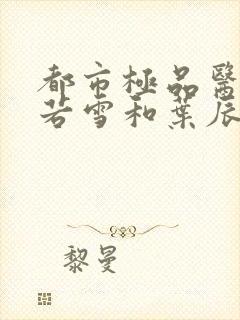 都市極品醫
若雪和葉辰
黎曼